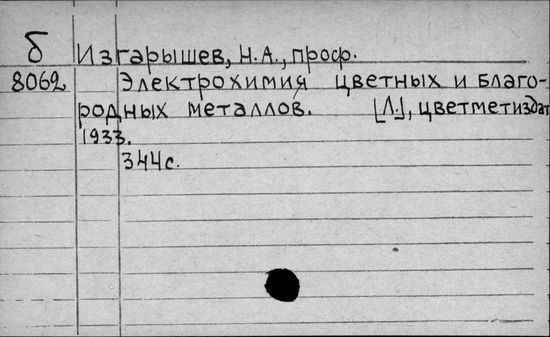 б Изгарышев, Н.А., проф.
8062 Электрохимия цветных и благо-
родных металлов. [Л.], цветметиздат
1933.
344с.